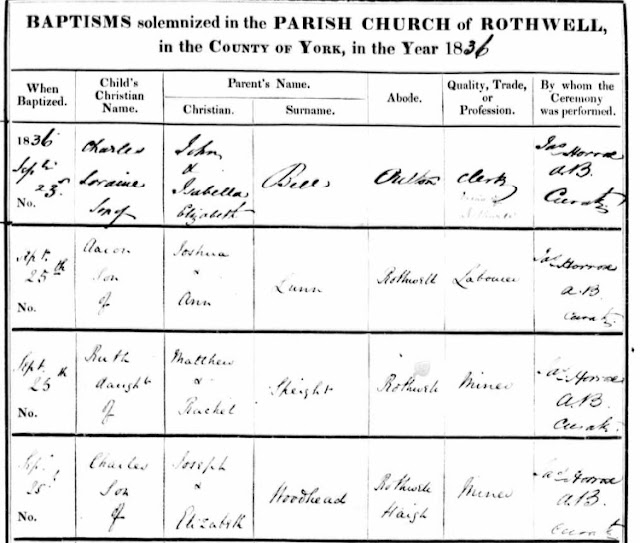 BAPTISMS solemnized in the PARISH CHURCH of ROTHWELL,
in the COUNTY OF YORK, in the Year 1836
When Baptized.
Child's Christian Name.
Parent's Name.
Christian.
Surname.
Abode.
Quality, Trade, or Profession.
By whom the Ceremony was performed.
1836
Septr
23rd
No.
Charles
Loraine
Son of
John
&
Isabella
Elizabeth
Bell
Oulton
Clerk
Jas Horrox
A.B.
Curate
Sept.
25th
No.
Aaron
Son
of
Joshua
&
Ann
Lunn
Rothwell
Labourer
Jas Horrox
A.B.
Curate
Sept.
25th
No.
Ruth
daught
of
Matthew
&
Rachel
Speight
Rothwell
Miner
Jas Horrox
A.B.
Curate
Sept.
25th
No.
Charles
Son
of
Joseph
&
Elizabeth
Woodhead
Rothwell
Haigh
Miner
Jas Horrox
A.B.
Curate